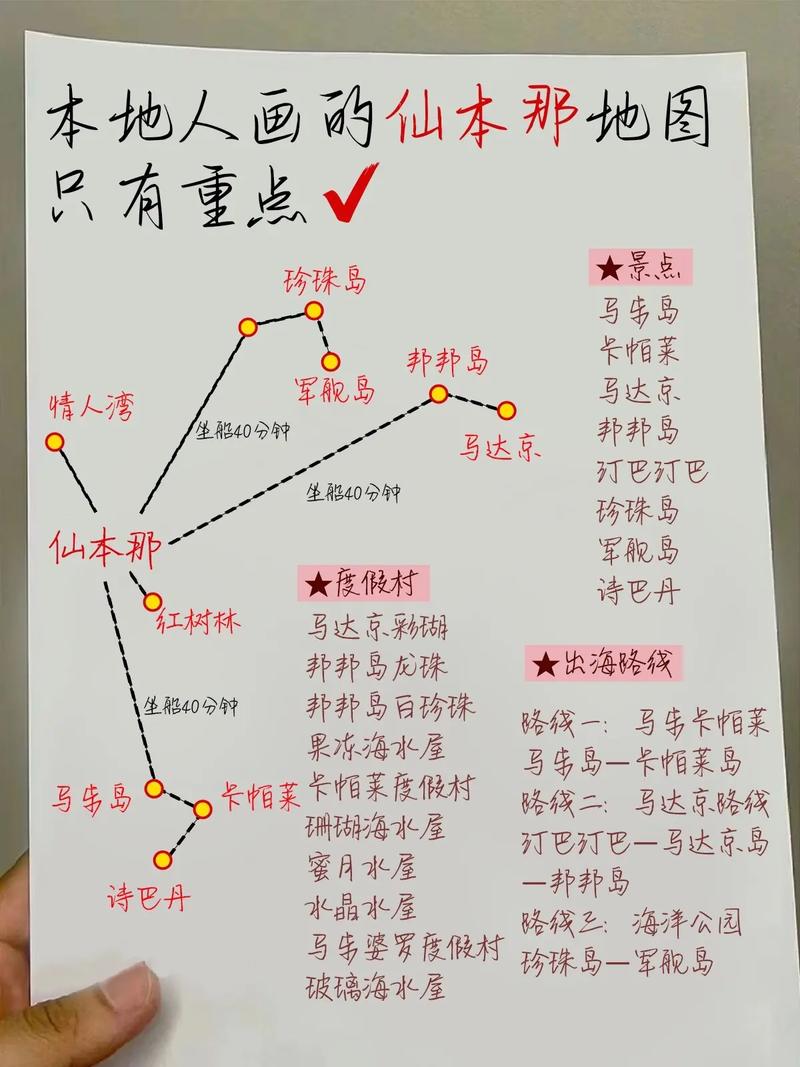 本地人画的仙本那地图
只有重点
珍珠岛
军舰岛
邦邦岛
马达京
情人湾
坐船40分钟
坐船40分钟
仙本那
红树林
坐船40分钟
马步岛
卡帕莱
诗巴丹
★景点
马步岛
卡帕莱
马达京
邦邦岛
汀巴汀巴
珍珠岛
军舰岛
诗巴丹
★度假村
马达京彩瑚
邦邦岛龙珠
邦邦岛白珍珠
果冻海水屋
卡帕莱度假村
珊瑚海水屋
蜜月水屋
水晶水屋
马步婆罗度假村
玻璃海水屋
★出海路线
路线一：马步卡帕莱
马步岛—卡帕莱岛
路线二：马达京路线
汀巴汀巴—马达京岛
—邦邦岛
路线三：海洋公园
珍珠岛—军舰岛